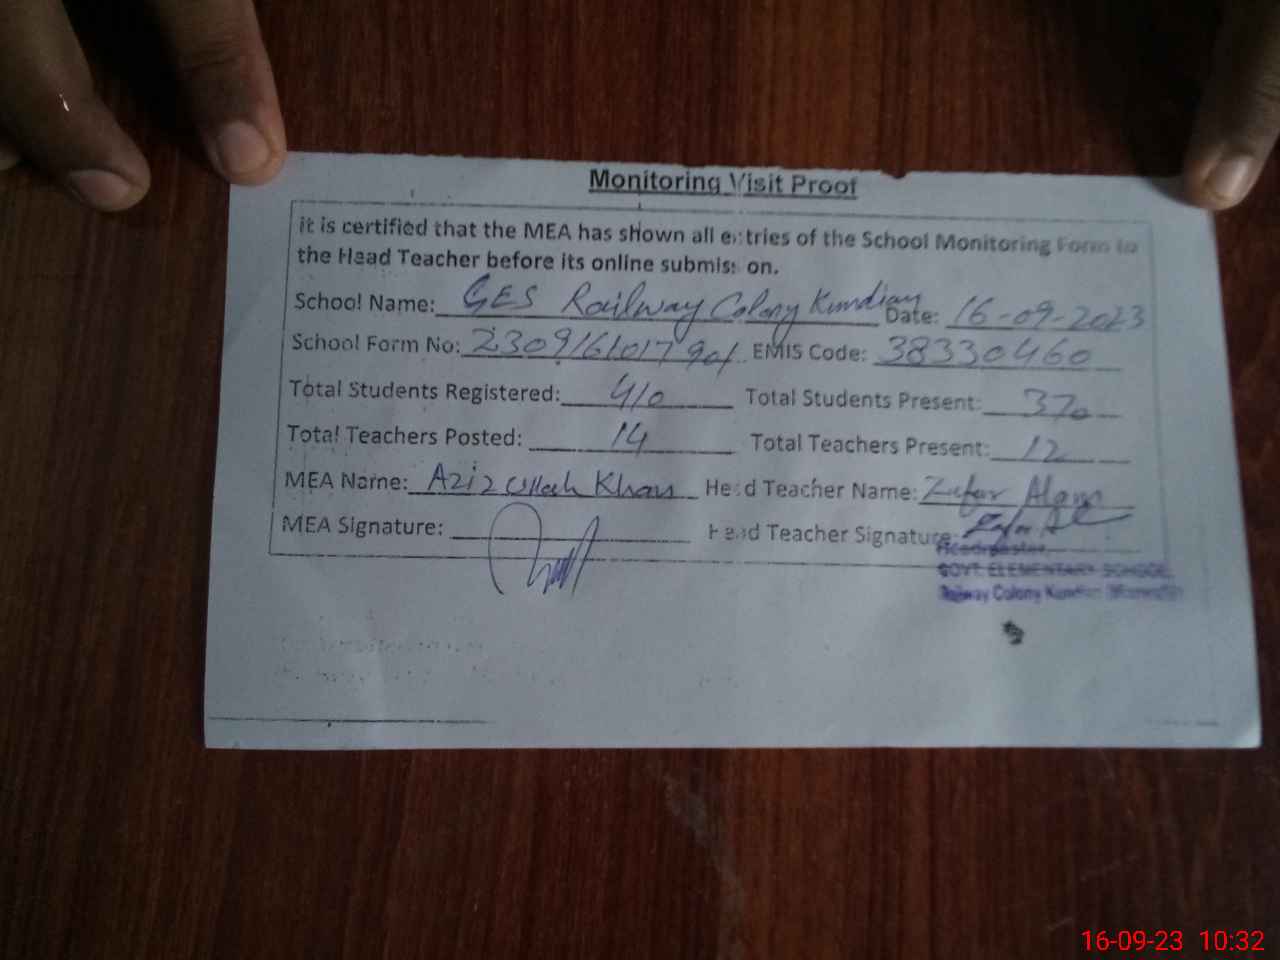 Monitoring Visit Proof
it is certified that the MEA has shown all entries of the School Monitoring Form to
the Head Teacher before its online submission.
School Name: GES Railway Colony Kundian Date: 16-09-2023
School Form No: EMIS Code: 38330460
Total Students Registered: 410 Total Students Present: 370
Total Teachers Posted: 14 Total Teachers Present: 12
MEA Name: Aziz Ullah Khan Head Teacher Name: Zafar Alam
MEA Signature: Head Teacher Signature:
Headmaster
GOVT. ELEMENTARY SCHOOL
Railway Colony Kundian (Mianwali)
16-09-23 10:32